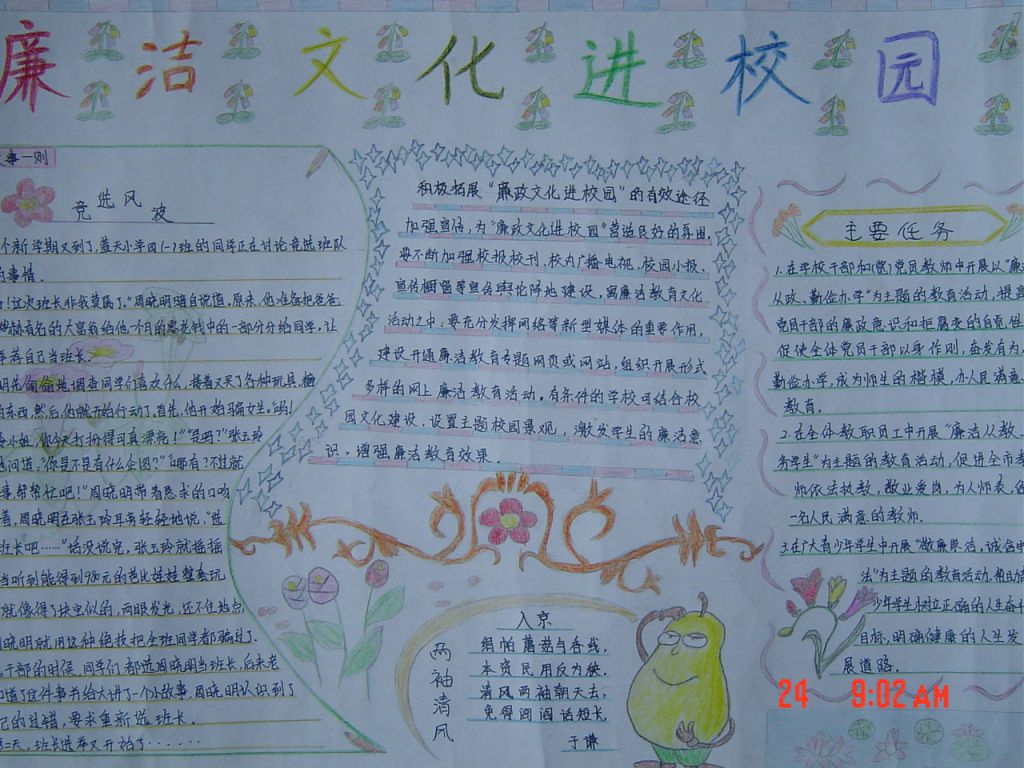 廉洁文化进校园
事一则
竞选风波
个新学期又到了,蓝天小学四(一)班的同学正在讨论竞选班队
事情。
!这次班长非我莫属了。”周晓明暗自说道,原来,他准备把爸爸
赫有名的大富翁给他一个月的零花钱中的一部分分给同学,让
荐自己当班长。
明先偷偷地调查同学们喜欢什么,接着又买了各种玩具,糖
东西,然后,他就开始行动了。首先,他开始骗女生。“妈!
小姐,你今天打扮得可真漂亮!”“是吗?”张玉玲
地问道,“你是不是有什么企图?”“哪有?不过就
事帮帮忙吧!”周晓明带着恳求的口吻
着,周晓明在张玉玲耳旁轻轻地说,“选
班长吧……”话没说完,张玉玲就摇摇
当听到能得到980元的芭比娃娃整套玩
就像得了块宝似的,两眼发光,还不住地点,
晓明就用这种绝技把全班同学都骗过了.
干部的时候,同学们都选周晓明当班长,后来老
知道了这件事并给大讲了一个小故事,周晓明认识到了
己的过错,要求重新选班长.
第二天,班长选举又开始了······
积极拓展“廉政文化进校园”的有效途径
加强宣传,为“廉政文化进校园”营造良好的氛围,
要不断加强校报校刊、校内广播电视、校园小报、
宣传橱窗等宣传舆论阵地建设,寓廉洁教育文化
活动之中;要充分发挥网络等新型媒体的重要作用,
建设开通廉洁教育专题网页或网站,组织开展形式
多样的网上廉洁教育活动。有条件的学校可结合校
园文化建设,设置主题校园景观,激发学生的廉洁意
识,增强廉洁教育效果.
两袖清风
入京
绢帕蘑菇与香线,
本资民用反为殃.
清风两袖朝天去,
免得闾阎话短长.
于谦
主要任务
1.在学校干部和(党)党员教师中开展以“廉
从政、勤俭办学”为主题的教育活动,提高
党员干部的廉政意识和拒腐变的自觉性
促使全体党员干部以身作则,奋发有为,
勤俭办学,成为师生的楷模,办人民满意
教育.
2.在全体教职员工中开展“廉洁从教、
务学生”为主题的教育活动,促进全市教
师依法执教,敬业爱岗,为人师表,
一名人民满意的教师.
3.在广大青少年学生中开展“敬廉崇洁,诚信守
法”为主题的教育活动,帮助
少年学生树立正确的人生
目标,明确健康的人生发
展道路.
24 9:02 AM